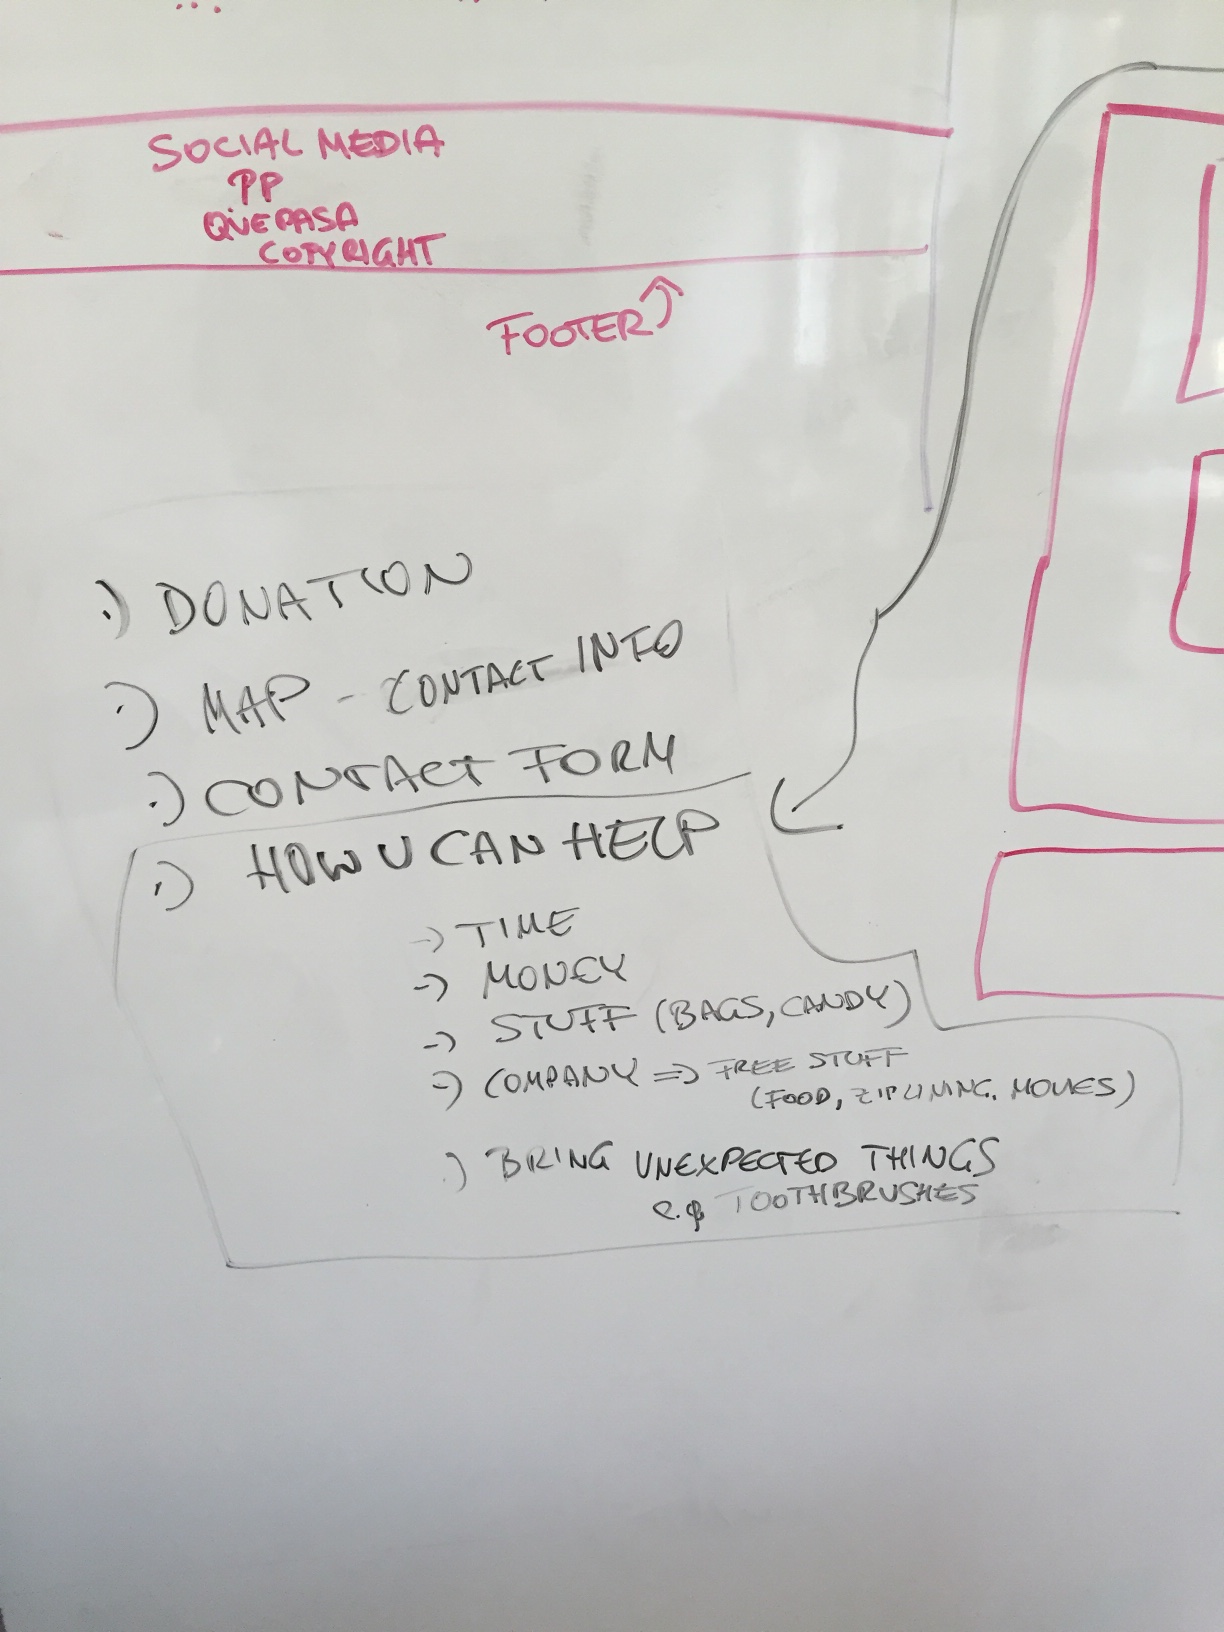 SOCIAL MEDIA
PP
QUEPASA
COPYRIGHT
FOOTER
·) DONATION
·) MAP - CONTACT INFO
·) CONTACT FORM
·) HOW U CAN HELP
-> TIME
-> MONEY
-> STUFF (BAGS, CANDY)
-> COMPANY => FREE STUFF
(FOOD, ZIPLINING, MOVIES)
·) BRING UNEXPECTED THINGS
e.g TOOTHBRUSHES